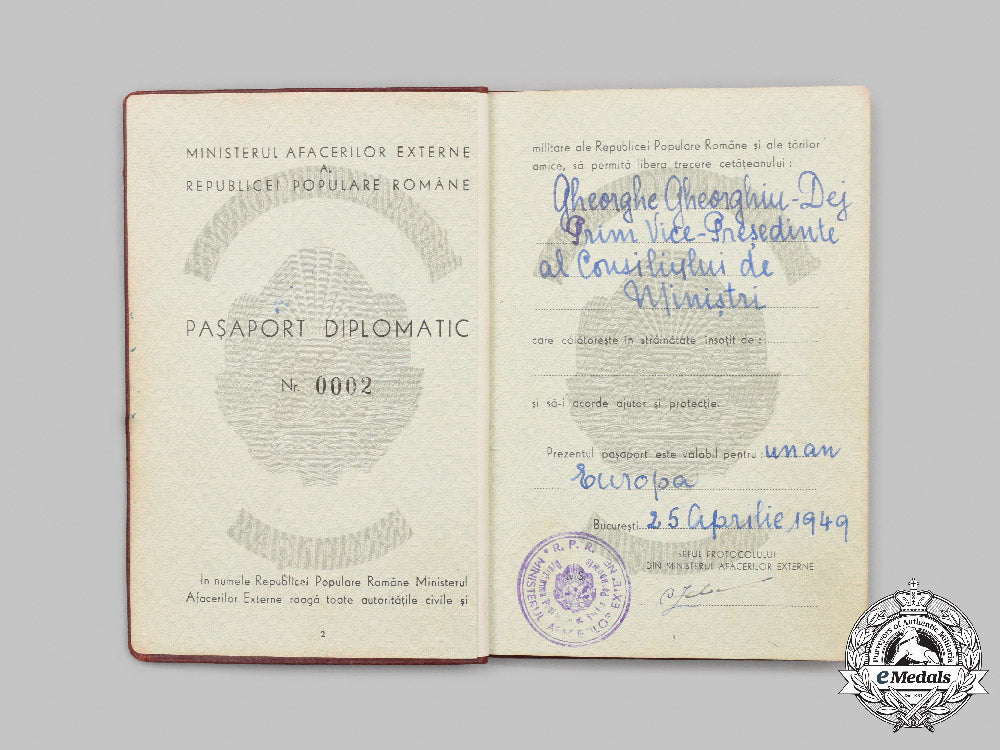 MINISTERUL AFACERILOR EXTERNE
AL
REPUBLICEI POPULARE ROMÂNE
PAȘAPORT DIPLOMATIC
Nr. 0002
În numele Republicei Populare Române Ministerul
Afacerilor Externe roagă toate autoritățile civile și
2
militare ale Republicei Populare Române și ale țărilor
amice, să permită libera trecere cetățeanului :
Gheorghe Gheorghiu-Dej
Prim Vice-Președinte
al Consiliului de
Miniștri
care călătorește în străinătate însoțit de :
și să-i acorde ajutor și protecție.
Prezentul pașaport este valabil pentru : un an
Europa
București 25 Aprilie 1949
ȘEFUL PROTOCOLULUI
DIN MINISTERUL AFACERILOR EXTERNE
R. P. R.
MINISTERUL AFACERILOR EXTERNE
Purveyors of Authentic Militaria
eMedals